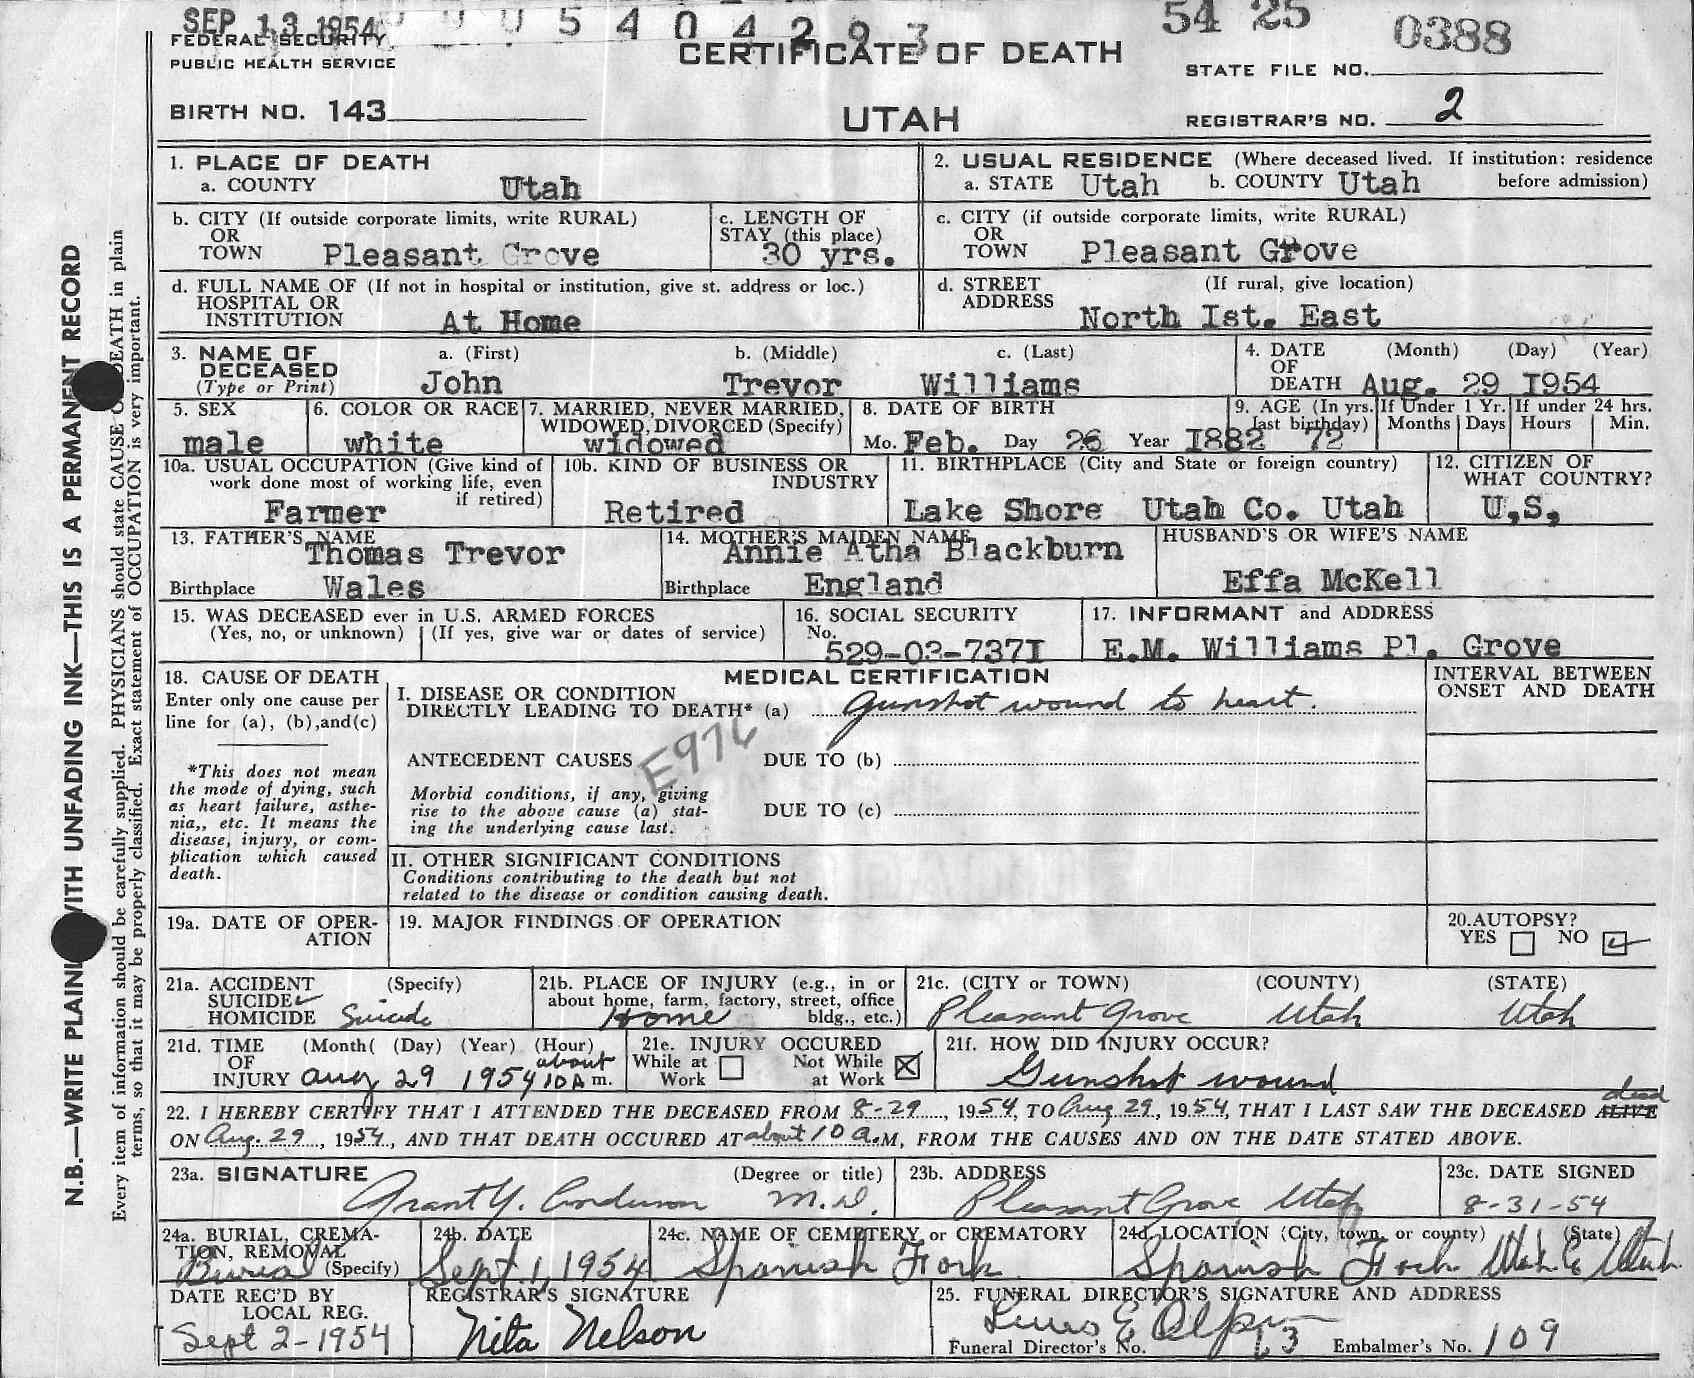 SEP 13 1954 54 0 4 2 9 3 54 25 0388
FEDERAL SECURITY
PUBLIC HEALTH SERVICE
CERTIFICATE OF DEATH
STATE FILE NO.
BIRTH NO. 143
UTAH
REGISTRAR'S NO. 2
1. PLACE OF DEATH
a. COUNTY Utah
2. USUAL RESIDENCE (Where deceased lived. If institution: residence
a. STATE Utah b. COUNTY Utah before admission)
b. CITY (If outside corporate limits, write RURAL)
OR
TOWN Pleasant Grove
c. LENGTH OF
STAY (this place)
30 yrs.
c. CITY (if outside corporate limits, write RURAL)
OR
TOWN Pleasant Grove
d. FULL NAME OF (If not in hospital or institution, give st. address or loc.)
HOSPITAL OR
INSTITUTION At Home
d. STREET (If rural, give location)
ADDRESS
North Ist. East
3. NAME OF a. (First) b. (Middle) c. (Last)
DECEASED
(Type or Print) John Trevor Williams
4. DATE (Month) (Day) (Year)
OF
DEATH Aug. 29 I954
5. SEX
male
6. COLOR OR RACE
white
7. MARRIED, NEVER MARRIED,
WIDOWED, DIVORCED (Specify)
widowed
8. DATE OF BIRTH
Mo. Feb. Day 26 Year I882
9. AGE (In yrs.
last birthday)
72
If Under 1 Yr.
Months Days
If under 24 hrs.
Hours Min.
10a. USUAL OCCUPATION (Give kind of
work done most of working life, even
if retired)
Farmer
10b. KIND OF BUSINESS OR
INDUSTRY
Retired
11. BIRTHPLACE (City and State or foreign country)
Lake Shore Utah Co. Utah
12. CITIZEN OF
WHAT COUNTRY?
U,S,
13. FATHER'S NAME
Thomas Trevor
Birthplace Wales
14. MOTHER'S MAIDEN NAME
Annie Atha Blackburn
Birthplace England
HUSBAND'S OR WIFE'S NAME
Effa McKell
15. WAS DECEASED ever in U.S. ARMED FORCES
(Yes, no, or unknown) (If yes, give war or dates of service)
16. SOCIAL SECURITY
No.
529-03-737I
17. INFORMANT and ADDRESS
E.M. Williams Pl. Grove
18. CAUSE OF DEATH
Enter only one cause per
line for (a), (b),and(c)
*This does not mean
the mode of dying, such
as heart failure, asthe-
nia,, etc. It means the
disease, injury, or com-
plication which caused
death.
MEDICAL CERTIFICATION
I. DISEASE OR CONDITION
DIRECTLY LEADING TO DEATH* (a) Gunshot wound to heart.
E976
ANTECEDENT CAUSES DUE TO (b)
Morbid conditions, if any, giving
rise to the above cause (a) stat-
ing the underlying cause last.
DUE TO (c)
II. OTHER SIGNIFICANT CONDITIONS
Conditions contributing to the death but not
related to the disease or condition causing death.
INTERVAL BETWEEN
ONSET AND DEATH
19a. DATE OF OPER-
ATION
19. MAJOR FINDINGS OF OPERATION
20.AUTOPSY?
YES NO
21a. ACCIDENT (Specify)
SUICIDE
HOMICIDE Suicide
21b. PLACE OF INJURY (e.g., in or
about home, farm, factory, street, office
bldg., etc.)
Home
21c. (CITY or TOWN) (COUNTY) (STATE)
Pleasant Grove Utah Utah
21d. TIME (Month( (Day) (Year) (Hour)
OF about
INJURY Aug 29 1954 10 A m.
21e. INJURY OCCURED
While at Not While
Work at Work
21f. HOW DID INJURY OCCUR?
Gunshot wound
dead
22. I HEREBY CERTIFY THAT I ATTENDED THE DECEASED FROM 8-29, 1954, TO Aug 29, 1954, THAT I LAST SAW THE DECEASED ALIVE
ON Aug. 29, 1954, AND THAT DEATH OCCURED AT about 10 a.M, FROM THE CAUSES AND ON THE DATE STATED ABOVE.
23a. SIGNATURE (Degree or title)
Grant Y. Anderson M.D.
23b. ADDRESS
Pleasant Grove Utah
23c. DATE SIGNED
8-31-54
24a. BURIAL, CREMA-
TION, REMOVAL
Burial (Specify)
24b. DATE
Sept 1, 1954
24c. NAME OF CEMETERY or CREMATORY
Spanish Fork
24d. LOCATION (City, town, or county) (State)
Spanish Fork Utah Co Utah
DATE REC'D BY
LOCAL REG.
Sept 2-1954
REGISTRAR'S SIGNATURE
Nita Nelson
25. FUNERAL DIRECTOR'S SIGNATURE AND ADDRESS
Funeral Director's No. 13 Embalmer's No. 109
N.B.—WRITE PLAINLY WITH UNFADING INK—THIS IS A PERMANENT RECORD
Every item of information should be carefully supplied. PHYSICIANS should state CAUSE OF DEATH in plain
terms, so that it may be properly classified. Exact statement of OCCUPATION is very important.